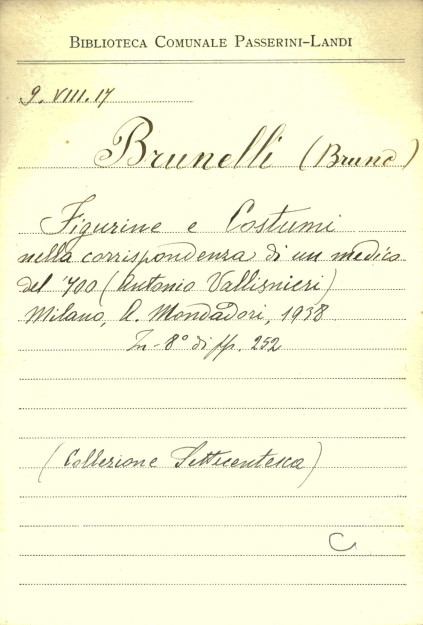 BIBLIOTECA COMUNALE PASSERINI-LANDI
9. VIII. 17
Brunelli (Bruno)
Figurine e Costumi
nella corrispondenza di un medico
del '700 (Antonio Vallisnieri)
Milano, A. Mondadori, 1938
In-8° di pp. 252
(Collezione Settecentesca)
C